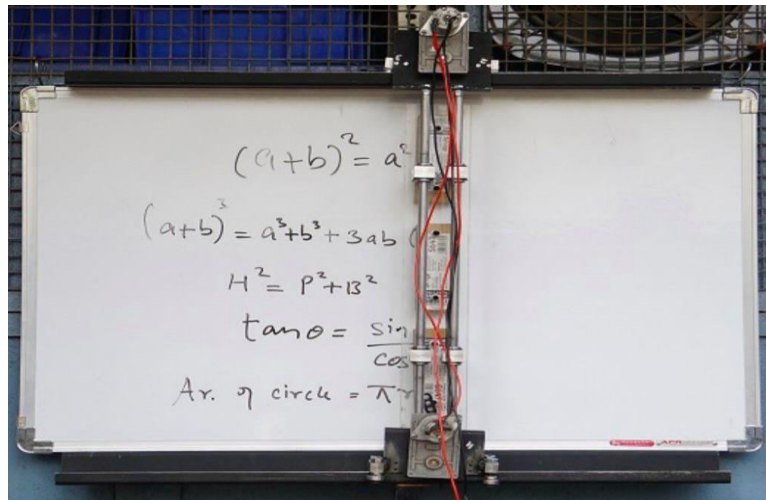 (a+b)² = a²
(a+b)³ = a³+b³+3ab (
H² = P²+B²
tanθ = sin
cos
Ar. of circle = πr